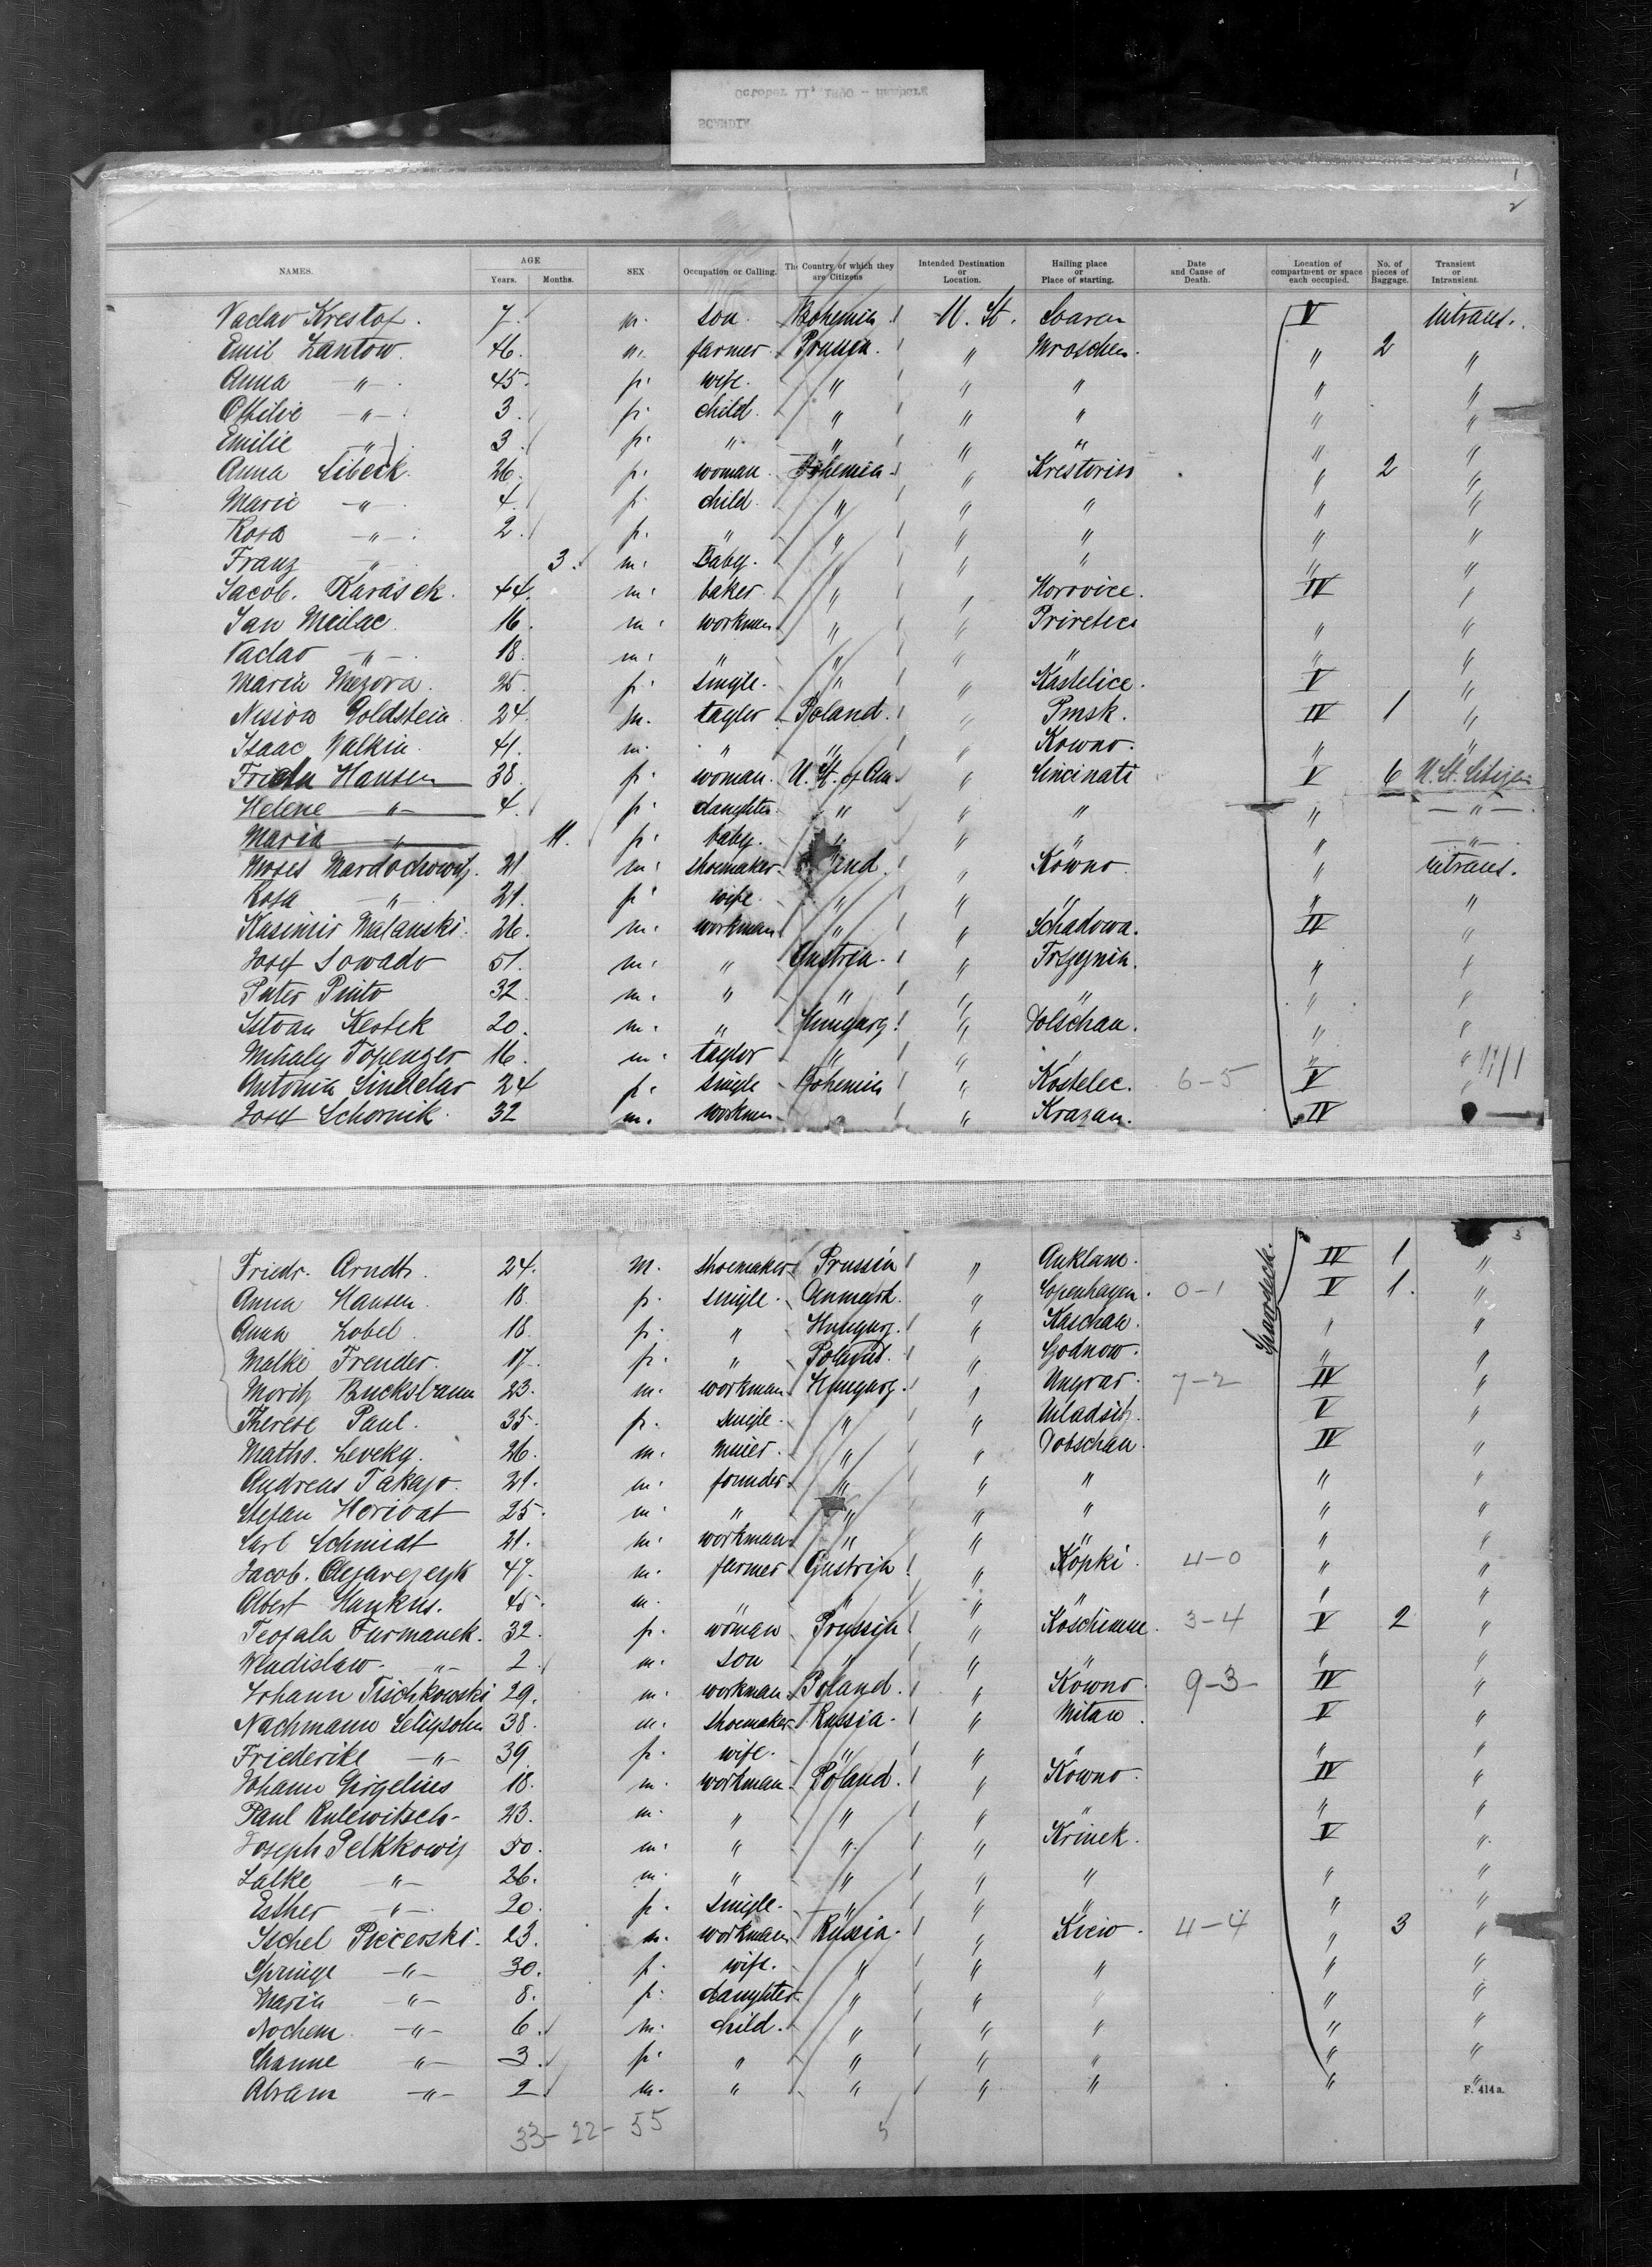 SCANDIA
October 11, 1890 - Hamburg
1
2
NAMES. AGE Years. Months. SEX Occupation or Calling. The Country of which they are Citizens Intended Destination or Location. Hailing place or Place of starting. Date and Cause of Death. Location of compartment or space each occupied. No. of pieces of Baggage. Transient or Intransient.
Vaclav Krestof. 7. m. son. Bohemia U. St. V intrans.
Emil Zantow. 46. m. farmer. Prussia. " Mroschen. " 2 "
Anna -"- 45. f. wife. " " " " "
Othilie -"- 3. f. child. " " " " "
Emilie -"- 3. f. " " " " " "
Anna Libeck. 26. f. woman. Bohemia " " 2 "
Marie -"- 4. f. child. " " " " "
Rosa -"- 2. f. " " " " " "
Franz -"- 3. m. Baby. " " " " "
Jacob. Karásek. 44. m. baker. " " Horovice. IV "
Jan Meilac. 16. m. workmen " " " "
Vaclav -"- 18. m. " " " " " "
Maria 25. f. single. " " Kastelice. V "
Goldstein 24. m. taylor Poland. " Pinsk. IV 1 "
Isaac Walkin. 41. m. " " " Kowno. " "
Frieda Hansen 38. f. woman. U. St. of Am " Cincinati V 6 U. St. Citizen
Helene -"- 4. f. daughter. " " " " -"-
Maria -"- 11. f. baby. " " " " -"-
Moses Mardochowitz. 21 m. shoemaker. " Kowno " intrans.
Rosa -"- 21. f. wife. " " " " "
Kasimir Malanski. 26. m. workman " " Schadowa. IV "
Josef Sowado 51. m. " Austria. " Trzyynia. " "
Peter Pinto 32. m. " " " " " "
Istvan Kestek 20. m. " Hungary. " Dolschau. " "
Mihaly Topenzer 16. m. taylor " " " " "
Antonia Sindelar 24 f. single Bohemia " Kostelec. 6-5 V "
Josef Schornik. 32 m. workmen " Krazan. IV
3
Friedr. Arndt. 24. m. shoemaker Prussia " Anklam. IV 1 "
Anna Hansen. 18. f. single. " Copenhagen. 0-1 V 1. "
Anna Zobel. 18. f. " Hungary. " Kaschau. " "
Malki Freuder. 17. f. " Poland. " Godnow. " "
Moritz Bucksbaum 23. m. workman Hungary. " Ungvar. 7-2 IV "
Therese Paul. 35. f. single. " " V "
Maths. Leveky. 26. m. " " Dobschau. IV "
Andreas Takajo. 21. m. founder " " " " "
Stefan Horvat 25. m. " " " " " "
Carl Schmidt 21. m. workman " " " " "
Jacob. 47. m. farmer Austria " Kopki. 4-0 " "
Albert Hankus. 45. m. " " " " " "
Teofala Furmanek. 32. f. woman Prussia " 3-4 V 2 "
Wladislaw. -"- 2. m. son " " " " "
Johann Tischkowski 29. m. workman. Poland. " Kowno. 9-3 IV "
Nachmann Seligsohn 38. m. shoemaker. Russia. " Mitau. V "
Friederike -"- 39 f. wife. " " " " "
Johann Girgelius 18. m. workman. Poland. " Kowno. IV "
Paul Kulewitsch- 23. m. " " " " " "
Joseph Pelkkowiz 50. m. " " " Krinek. V "
Lalke -"- 26. m. " " " " " "
Esther -"- 20. f. single. " " " " "
Itchel Picerski. 23. m. workman Russia. " Kiew. 4-4 " 3 "
Springe -"- 30. f. wife. " " " " "
Maria -"- 8. f. daughter. " " " " "
Nochem. -"- 6. m. child. " " " " "
Channe -"- 3. f. " " " " " "
Abram -"- 2. m. " " " " " "
F. 414 a.
33-22-55